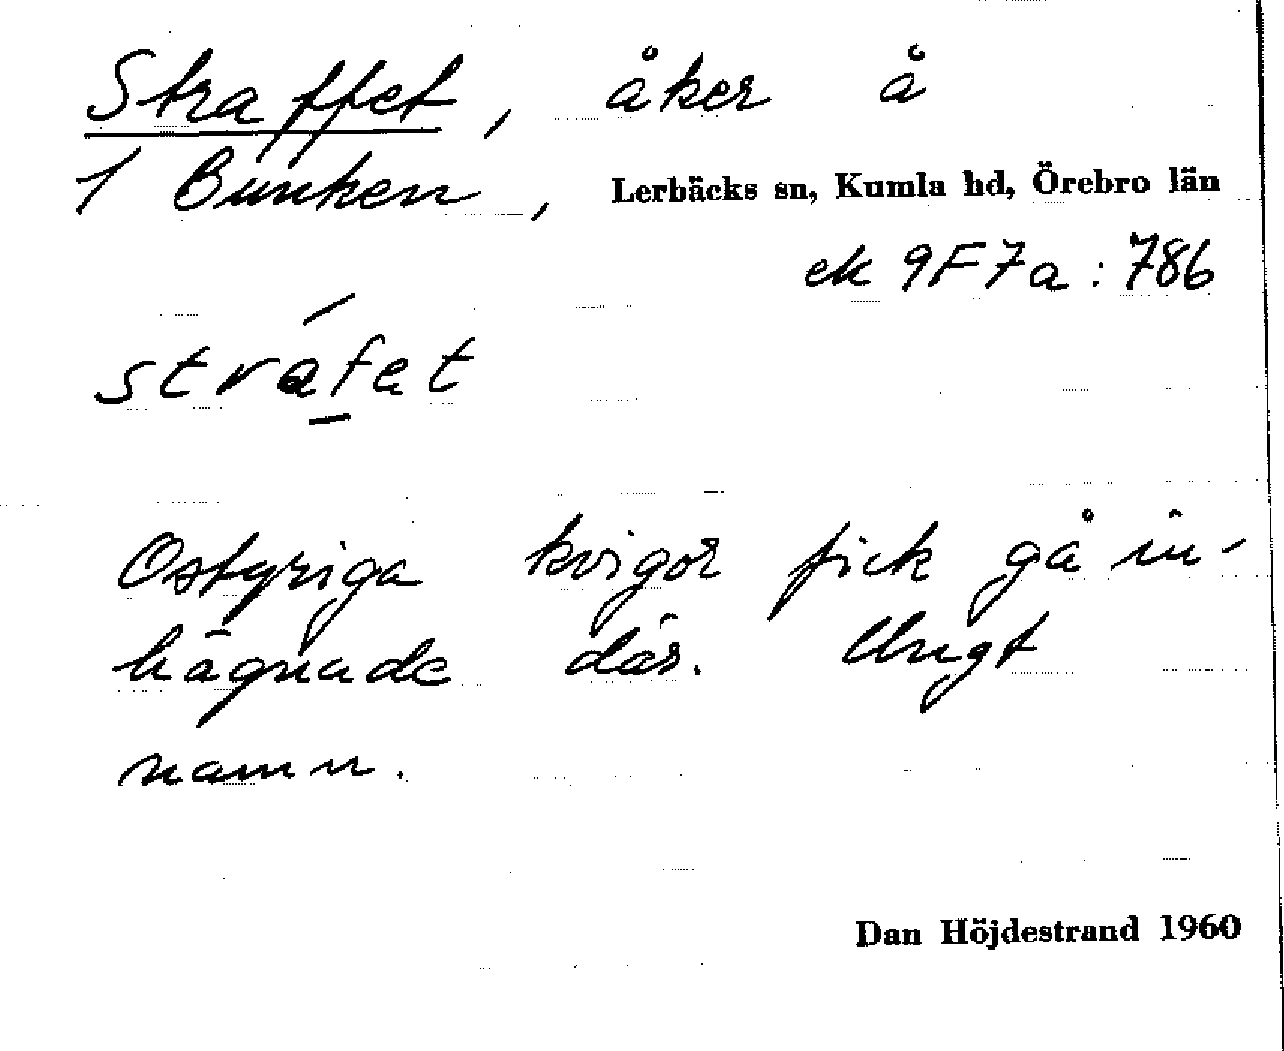 Straffet, åker å
1 Bunken, Lerbäcks sn, Kumla hd, Örebro län
ek 9F7a:786
stráfat
Ostyriga kvigor fick gå in-
hägnade där. Ungt
namn.
Dan Höjdestrand 1960